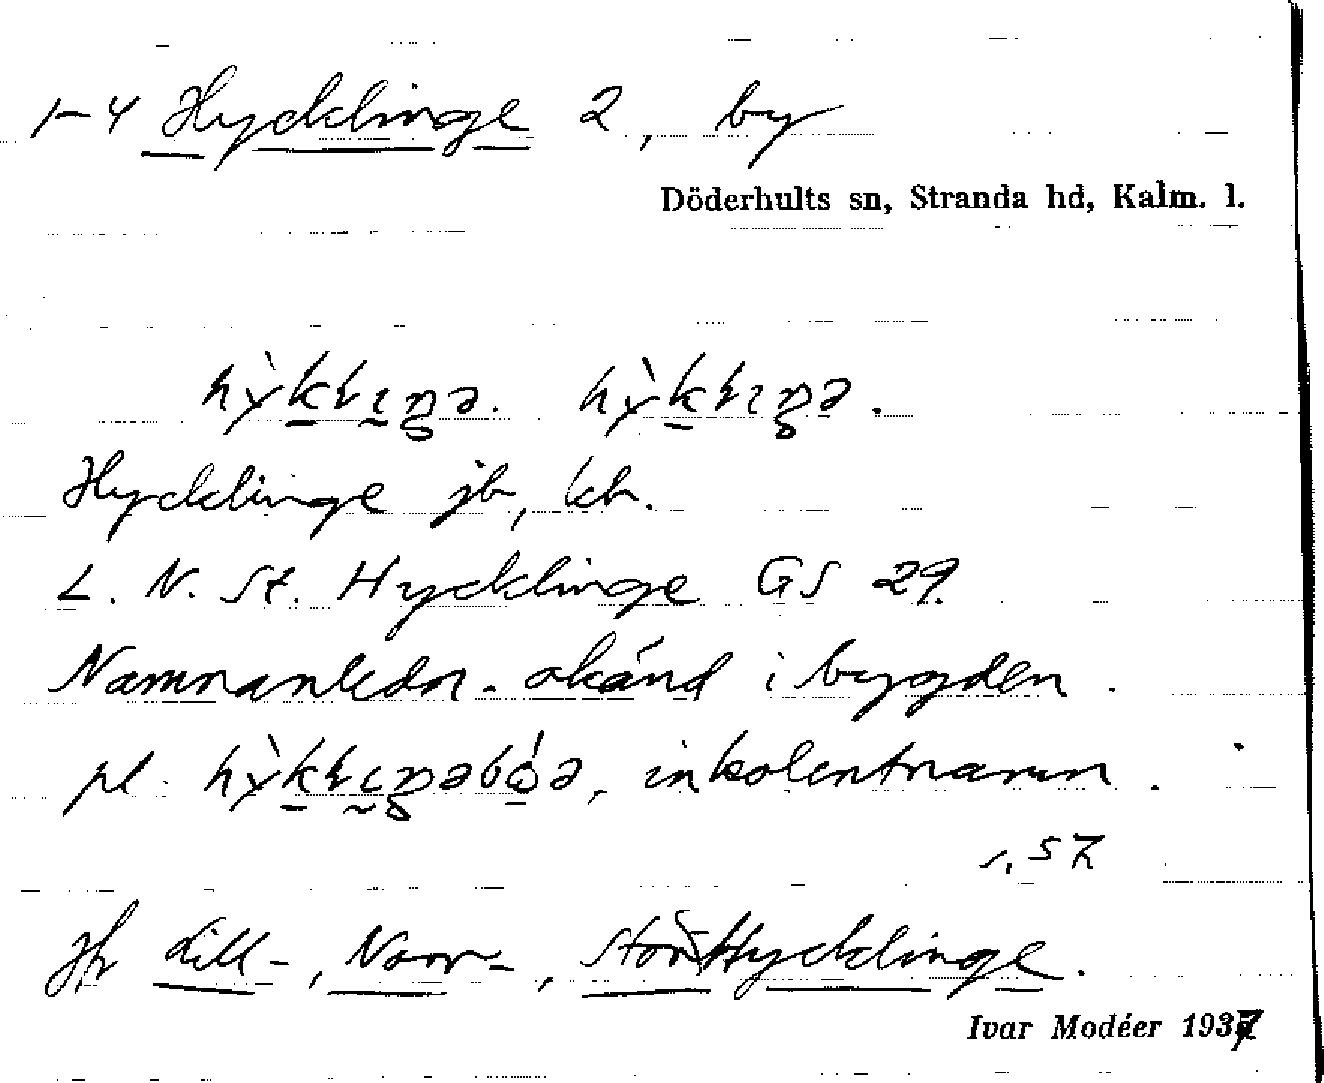 1-4 Hycklinge 2, by
Döderhults sn, Stranda hd, Kalm. l.
Hycklinge jb, kb.
L. N. St. Hycklinge GS 29.
Namnanledn. okänd i bygden.
pl. inkolentnamn.
s. 57
Jfr Lill-, Norr-, StorHycklinge.
Ivar Modéer 1937